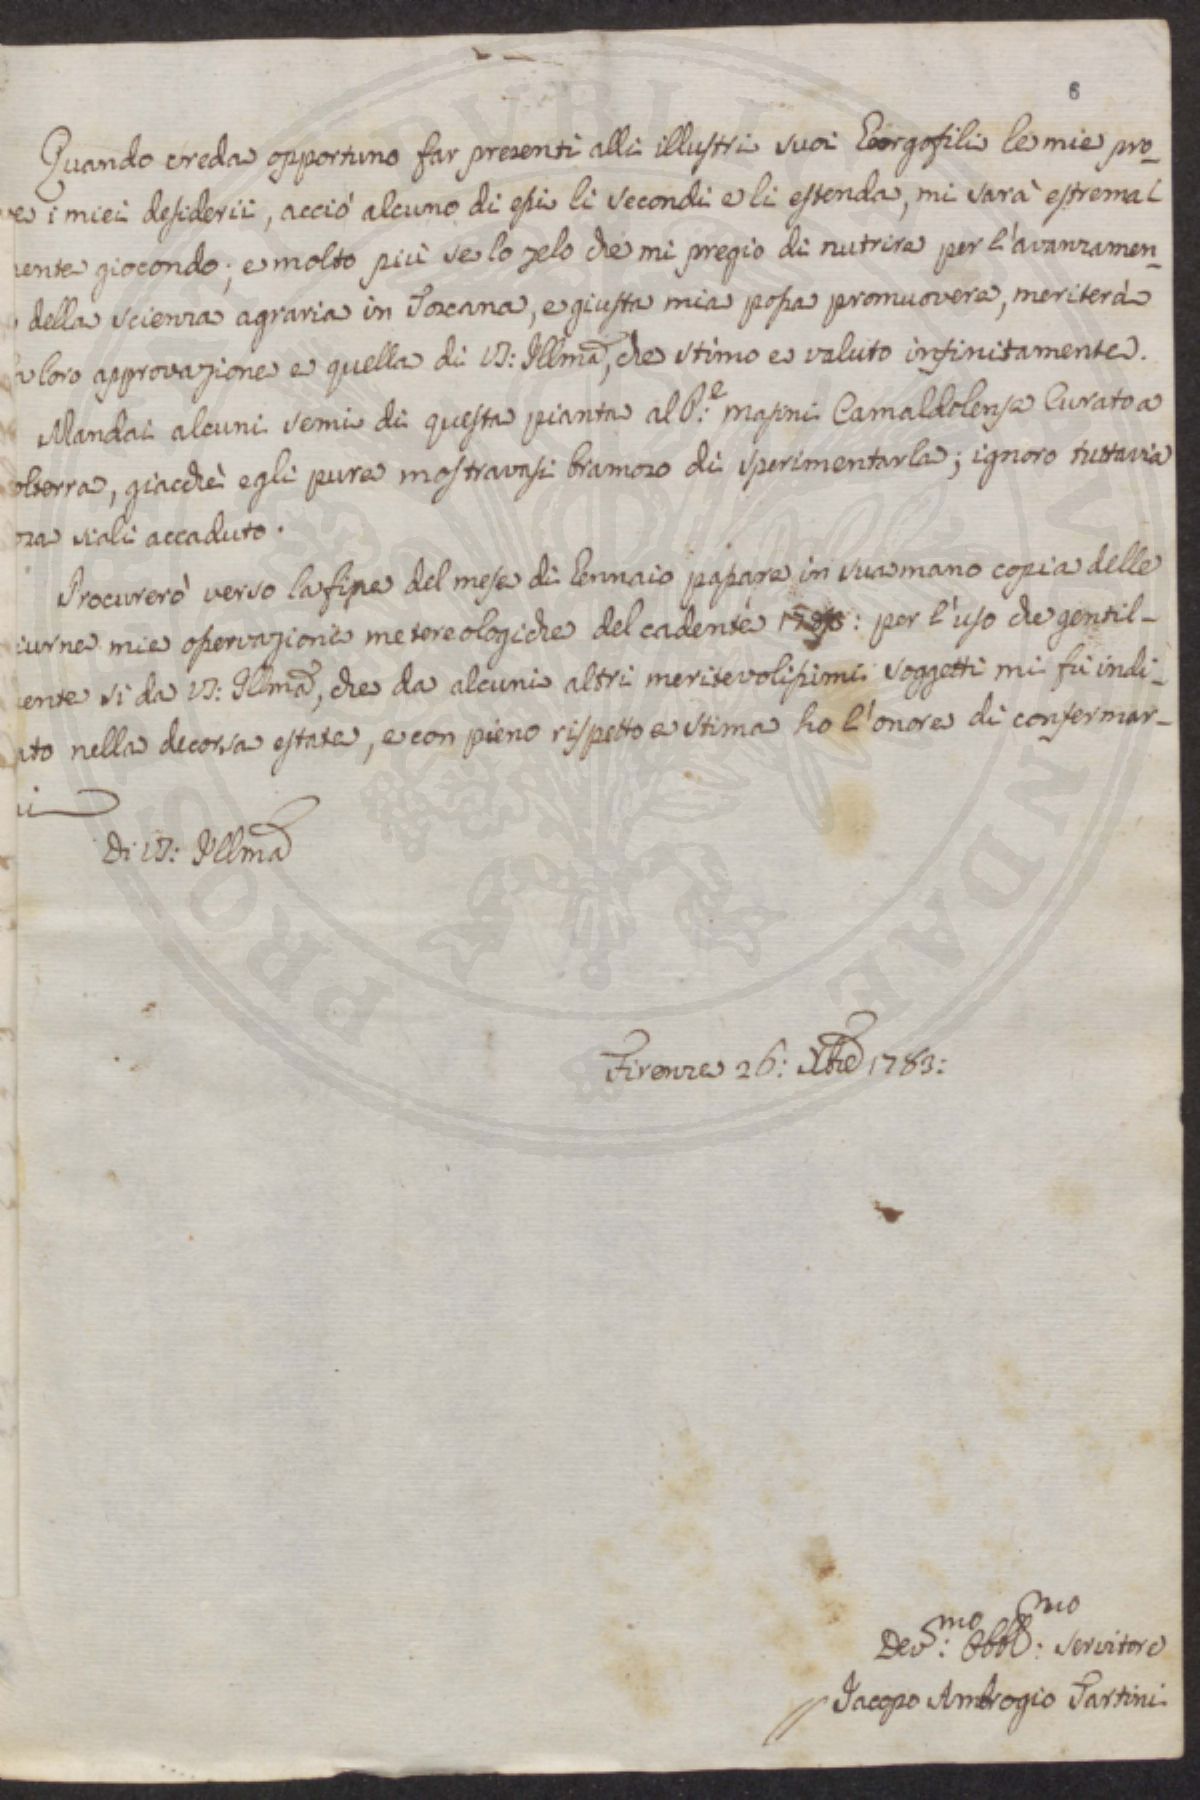 6
Quando creda opportuno far presenti alli illustri suoi Georgofili le mie pro-
ve i miei desiderii, acciò alcuno di essi li secondi e li estenda, mi sarà estremal
mente giocondo; e molto più se lo zelo che mi pregio di nutrire per l'avanzamen-
della scienza agraria in Toscana, e giusta mia possa promuovere, meriterà
loro approvazione e quella di V: Illma, che stimo e valuto infinitamente.
Mandai alcuni semi di questa pianta al P.e Masini Camaldolense Curato a
olterra, giacchè egli pure mostravasi bramoso di sperimentarla; ignoro tuttavia
osa siali accaduto.
Procurerò verso la fine del mese di Gennaio passare in sua mano copia delle
iurne mie osservazioni metereologiche del cadente : per l'uso che gentil-
ente si da V: Illma, che da alcuni altri meritevolissimi soggetti mi fù indi-
ato nella decorsa estate, e con pieno rispetto e stima ho l'onore di confermar-
mi
Di V: Illma
Firenze 26: Xbre 1783:
Dev:mo Obbl:mo Servitore
Jacopo Ambrogio Tartini
PROSPERITATI PUBLICAE AUGENDAE